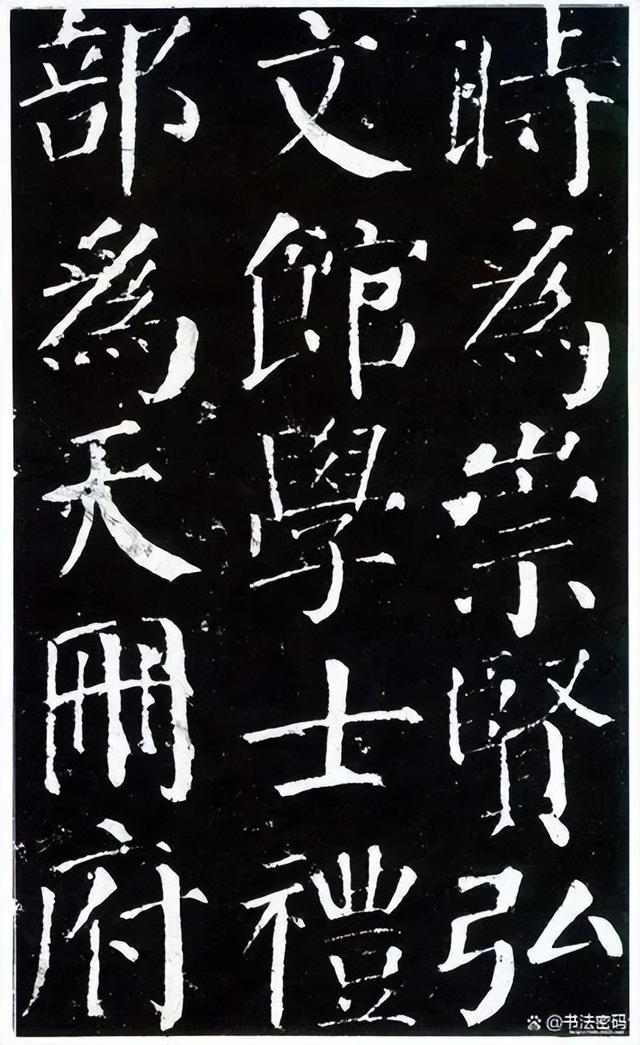 時為崇賢弘
文館學士禮
部為天冊府
@书法密码